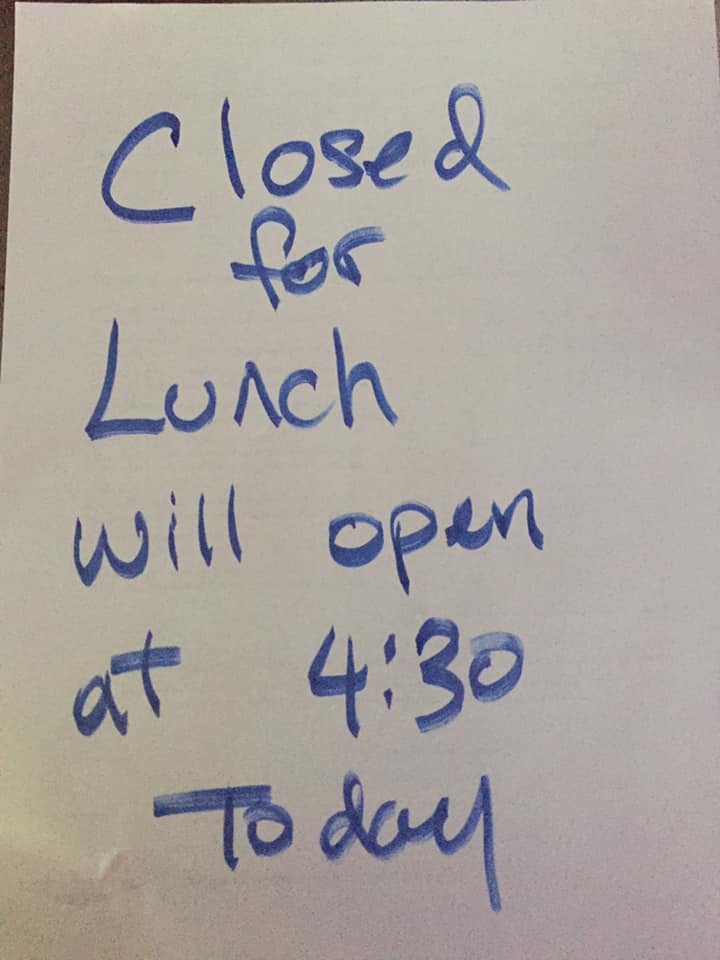 Closed
for
Lunch
will open
at 4:30
Today